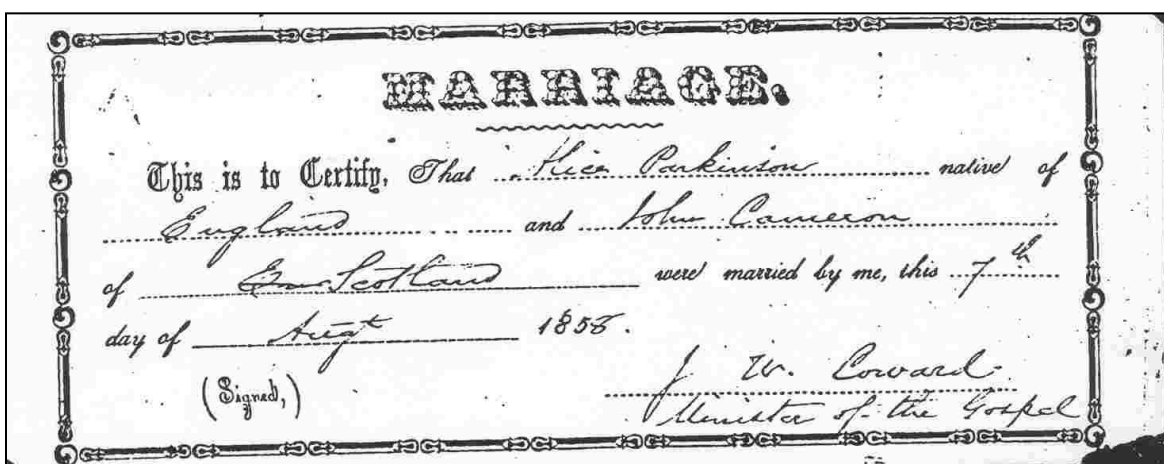 MARRIAGE.
This is to Certify, That Alice Parkinson native of
England and John Cameron
of Scotland were married by me, this 7th
day of Augt 1858.
(Signed,) J. W. Coward.
Minister of the Gospel